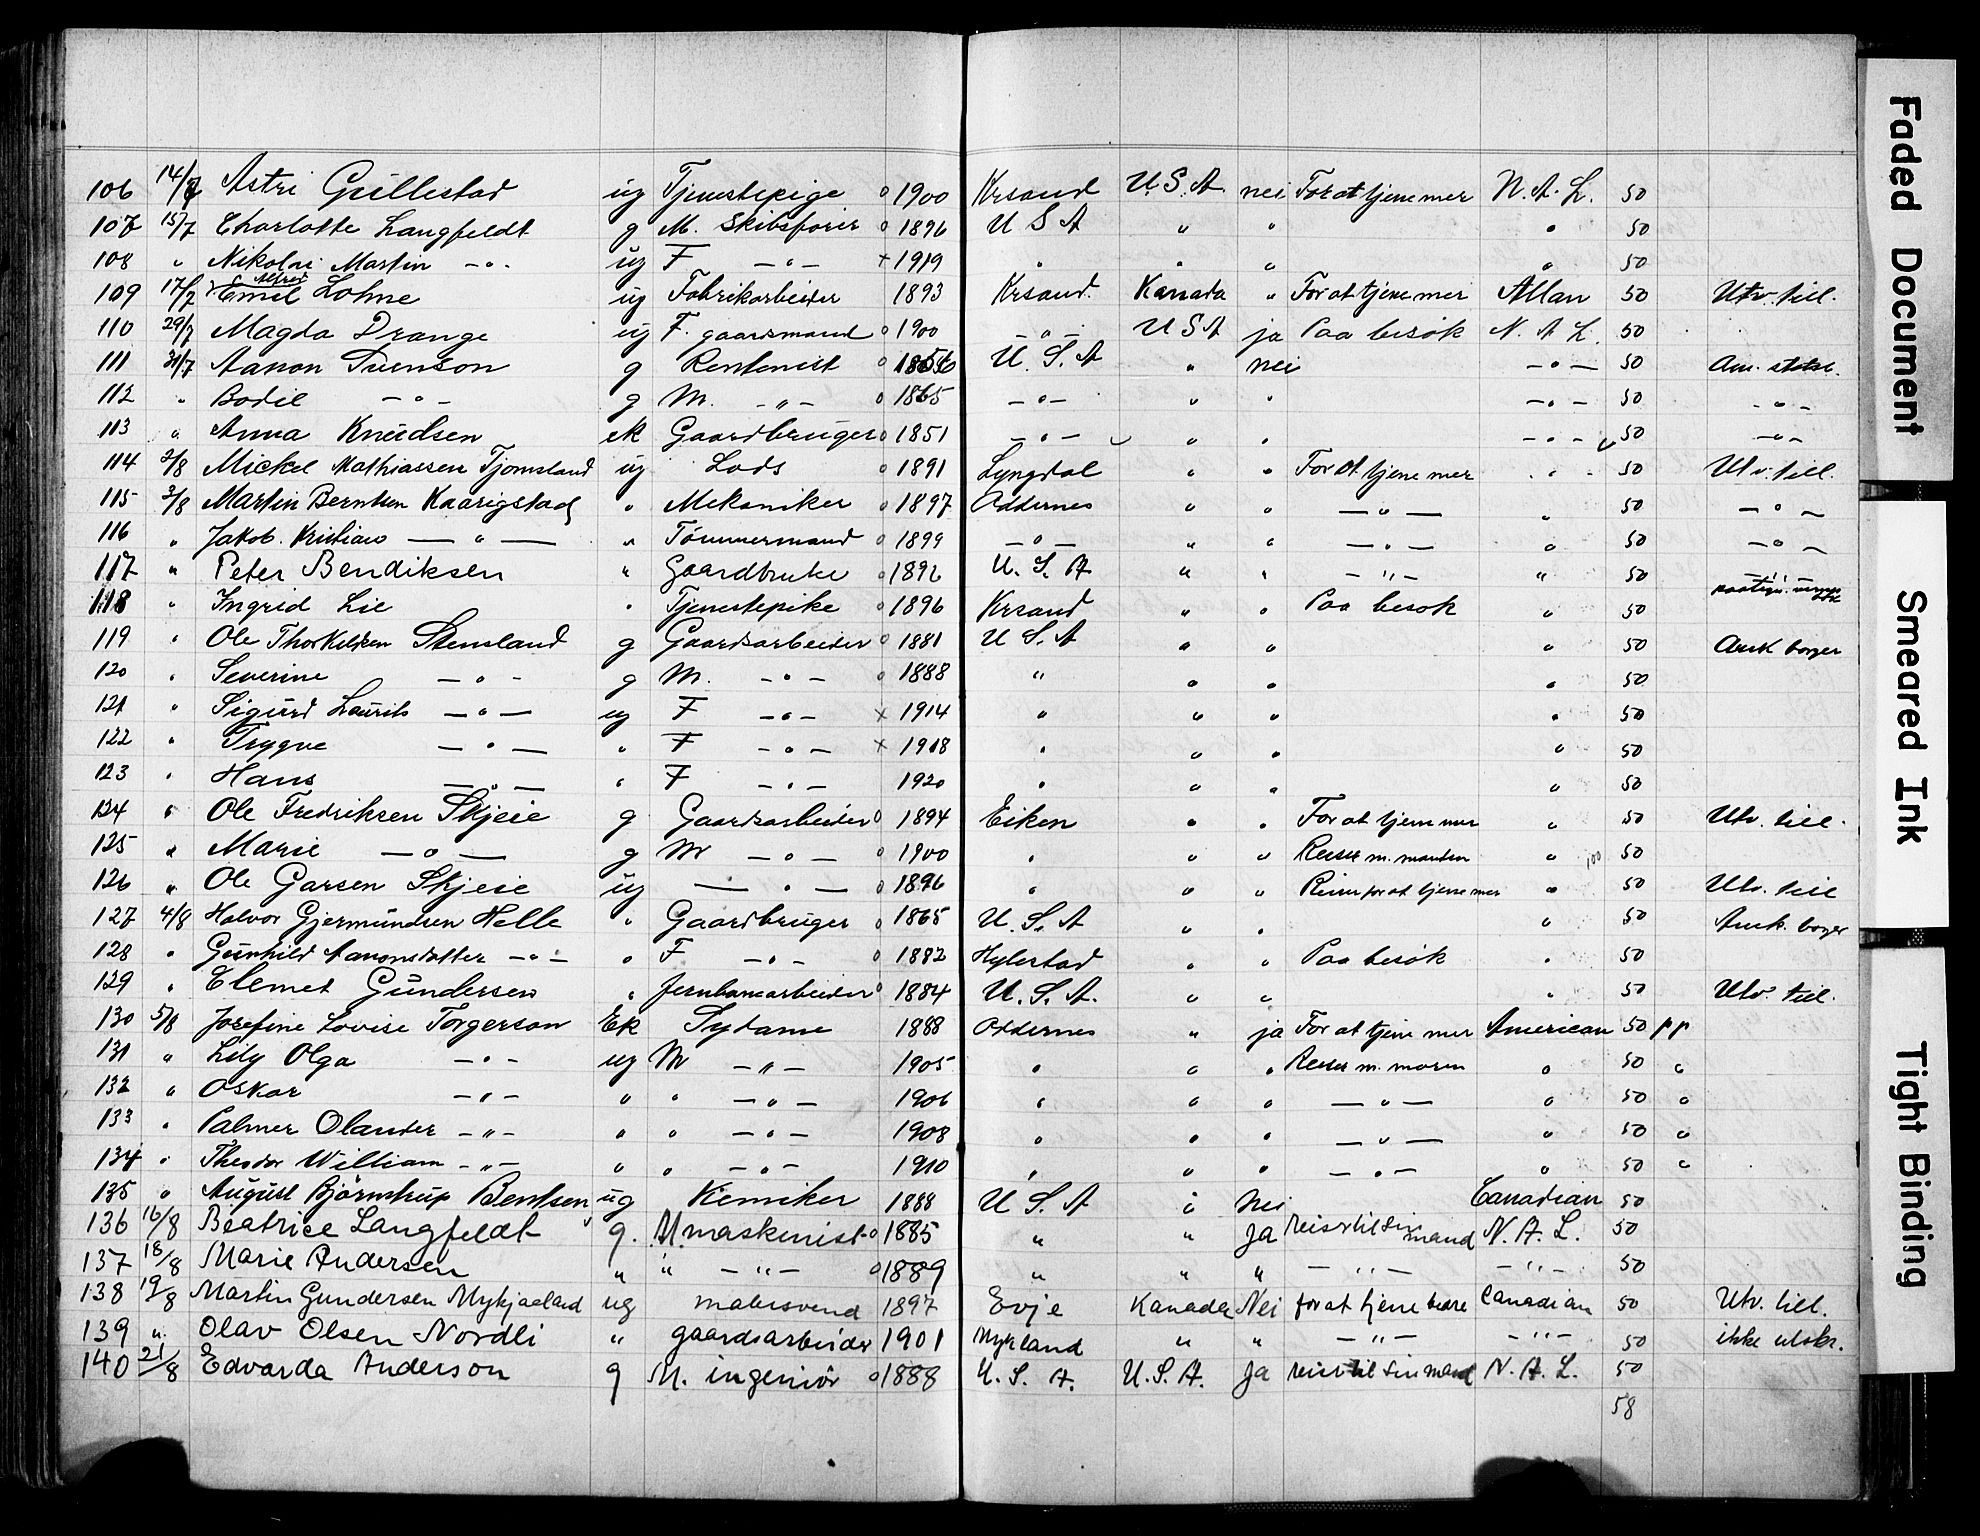 106 14/7 Astri Gullestad ug Tjenestepige o 1900 Krsand U.S.A. nei For at tjene mer N.A.L. 50
107 15/7 Charlotte Langfeldt g M. Skibsfører o 1896 U S A " " " 50
108 " Nikolai Martin -"- ug F -"- + 1919 " " " " 50
109 17/7 Emil Alfred Lohne ug Fabrikarbeider 1893 Krsand. Kanada " For at tjene mer Allan 50 Utv. till.
110 29/7 Magda Drange ug F. gaardmand o 1900 -"- U S A ja Paa besøk N. A L. 50
111 31/7 Aanon Svenson g Rentenist o 1856 U. S. A " nei -"- 50 Am. statsb.
112 " Bodil -"- g M. -"- o 1865 -"- " " -"- 50 -"-
113 " Anna Knudsen ek Gaardbruger o 1851 -"- " " -"- 50 -"-
114 2/8 Mickel Mathiassen Tjomsland ug Lods o 1891 Lyngdal " " For at tjene mer -"- 50 Utv. till.
115 3/8 Martin Berntsen Kaarigstad " Mekaniker o 1897 Oddernes " " -"- " 50 -"-
116 " Jakob Kristian -"- " Tømmermand o 1899 -"- " " -"- " 50 -"-
117 " Peter Bendiksen " Gaardbruke o 1892 U. S. A " " -"- " 50 -"-
118 " Ingrid Lie " Tjenestepike o 1896 Krsand " " Paa besøk " 50
119 " Ole Thorkildsen Stensland g Gaardsarbeider o 1881 U S. A " " " 50 Amk borger
120 " Severine -"- g M. -"- o 1888 " " " " 50
121 " Sigurd Laurits -"- ug F -"- x 1914 " " " " 50
122 " Trygve -"- " F -"- + 1918 " " " " 50
123 " Hans -"- " F -"- 1920 " " " " 50
124 " Ole Fredriksen Skjeie g Gaardsarbeider o 1894 Eiken " " For at tjene mer " 50 Utv. till.
125 " Marie -"- g M -"- o 1900 " " " Reiser m. manden " 100 50
126 " Ole Garsen Skjeie ug -"- o 1896 " " " Reiser for at tjene mer " 50 Utv. till
127 4/8 Halvor Gjermundsen Helle " Gaardbruger o 1865 U. S. A " " " 50 Amk. borger
128 " Gunhild Aanonsdatter -"- " F -"- o 1882 Hylestad " " Paa besøk " 50
129 " Clemet Gundersen " Jernbanearbeider o 1884 U. S. A. " " " 50 Utv. till.
130 5/8 Josefine Lovise Torgerson Ek Sydame 1888 Oddernes " ja For at tjene mer American 50 pp
131 " Lily Olga -"- ug M -"- 1905 " " " Reiser m. moren " 50 "
132 " Oskar -"- " " -"- 1906 " " " -"- " 50 "
133 " Palmer Olander -"- " " -"- 1908 " " " -"- " 50 "
134 " Theodor William -"- " " -"- 1910 " " " -"- " 50 "
135 " August Bjørnstrup Bentsen ug Kemiker 1888 U S. A " Nei Canadian 50
136 16/8 Beatrice Langfeldt g. M. maskinist o 1885 " " Ja reiser til sin mand N. A. L. 50
137 18/8 Marie Andersen " " -"- o 1889 " " " -"- -"- 50
138 19/8 Martin Gundersen Mykjaaland ug malersvend 1897 Evje Kanada Nei for at tjene bedre Canadian 50 Utv. till.
139 " Olav Olsen Nordli " gaardsarbeider 1901 Mykland " " -"- -"- 50 ikke utskr.
140 21/8 Edvarda Anderson g M. ingeniør o 1888 U. S. A. U. S. A. Ja reiser til sin mand N. A. L. 50
58
Faded Document
Smeared Ink
Tight Binding